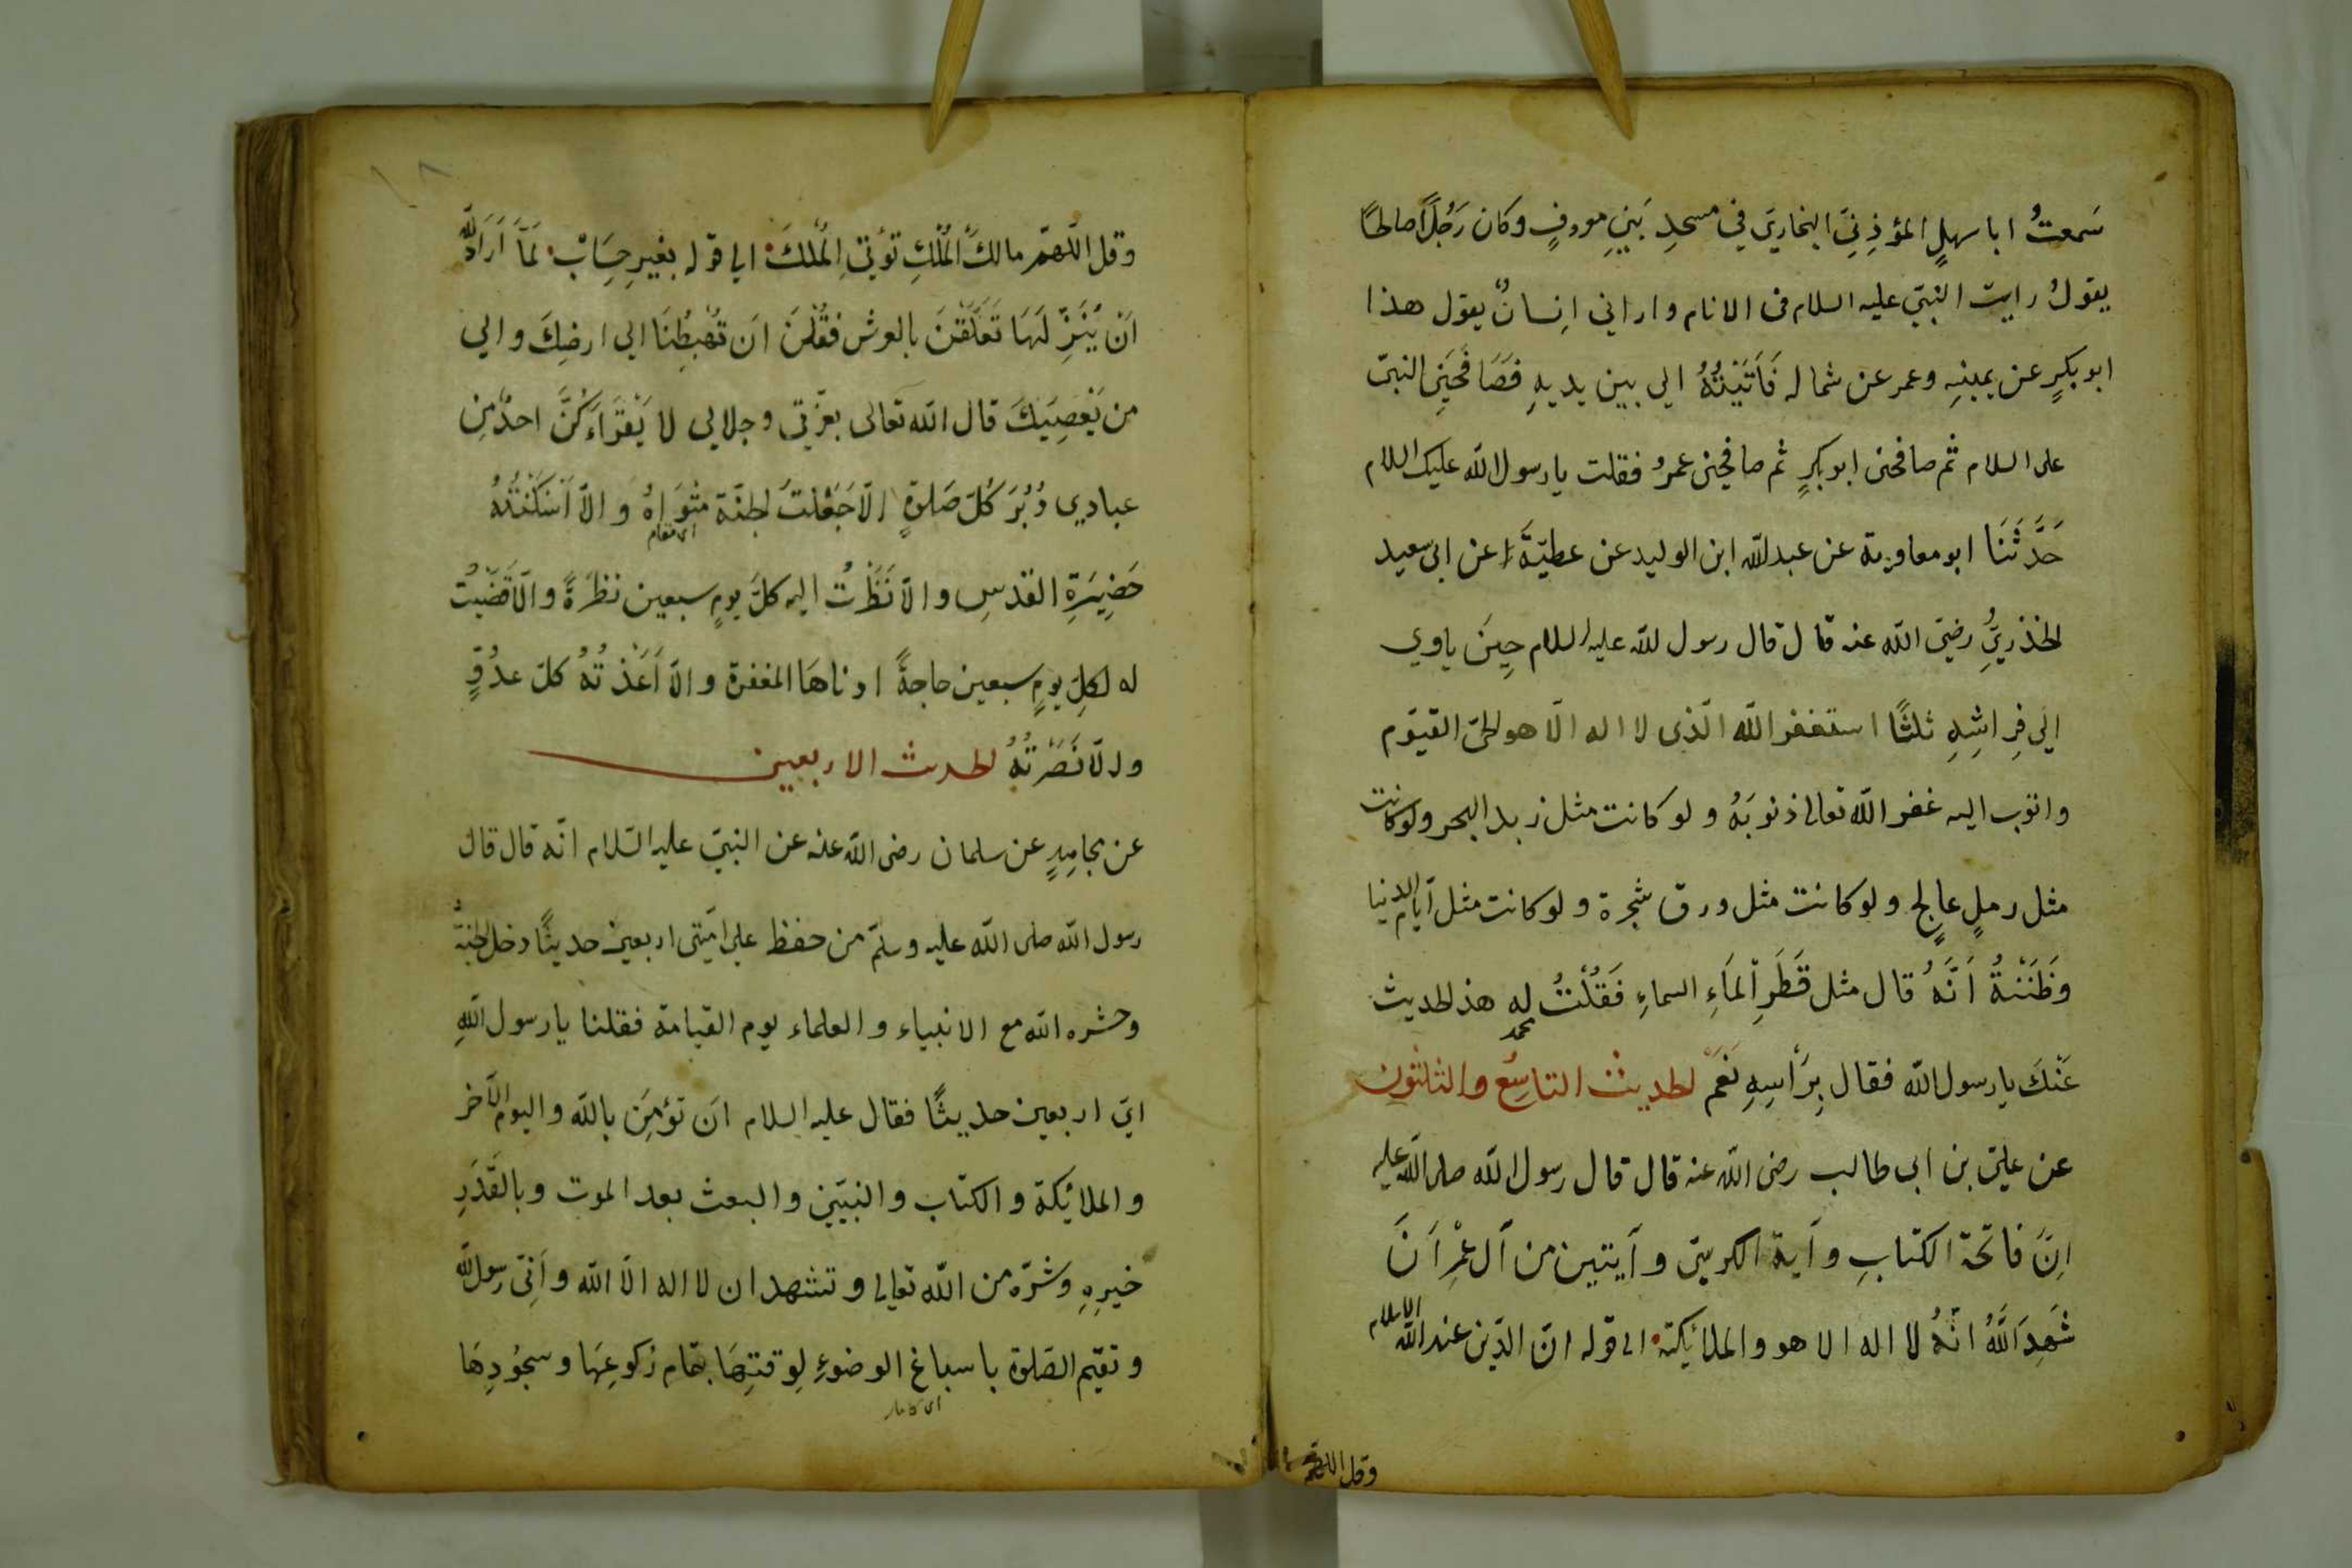 سَمعتُ ابا سهلٍ المؤذِنيّ البخاريّ في مسجدِ بَنِي مودفٍ وكان رَجُلًا صالحًا
يقولُ رايت النبيّ عليه السلام فى الانام واراني انِسانٌ يقول هذا
ابو بكرٍ عن يمينِه وعمر عن شماله فَأتَيْتُهُ الي بين يديهِ فَصَافَحَنِى النبىّ
على السلام ثم صافحنى ابو بكرٍ ثم صافحنى عمرُ فقلت يا رسول الله عليك السلام
حَدَّثَنَا ابو معاوية عن عبدلله ابن الوليد عن عطيّةَ عن ابى سعيد
الخذريِّ رضىَ الله عنه قال قال رسول لله عليه السلام حِينَ ياوي
الَي فِراشِهِ ثلثًا استغفر الله الّذى لا اله الّا هو الحىّ القيّوم
واتوب اليه غفر الله تعالى ذنوبَهُ ولو كانت مثل زبد البحر ولو كانت
مثل رملٍ عالجٍ ولو كانت مثل ورق شجرة ولو كانت مثل ايّام الدنيا
وَظَنَنْتهُ اَنَّهُ قال مثل قَطَرِ اْلمَاءِ السماءِ فَقُلْتُ له هذ الحديث
محمد
عَنْكَ يا رسول الله فقال بِرَأسِهِ نَعَمْ الحديث التاسِعُ والثلثون
عن علىّ بن ابى طالب رضى الله عنه قال قال رسول الله صلى الله عليه
اِنّ فاتحة الكتابِ وآية الكرسىّ وآيتين من آل عِمْرَانَ
شَهِدَ اللَّهُ انّهُ لا اله الا هو والملائِكة الى قوله انّ الدّين عند الله الاسلام
وقل اللهمّ
وقل اللّهمّ مالكَ المُلْكِ تؤتِي الْمُلكَ الي قوله بغيرِ حِسَابٍ لَمّا اَرَادَ اللّه
اَنْ يُنَزِّ لَهَا تَعَلّقْنَ بالعرش فقُلْنَ اَن تُهْبِطُنَا الي ارضِكَ والي
من يَعْصِيَكَ قال الله تعالى بعزّتي وجلالي لا يَقْرَاَءَكُنَّ احدٌ مِن
عبادي دُبُرَ كُلّ صَلوةٍ الّا جَعَلْتُ الجنّة مثْوَاهُ وَ الّا اَسْكَنْتُهُ
اى مقام
حَضِيَرةِ القدسِ والّا نَظَرْتُ اليه كلّ يومٍ سبعين نظرَةً والّا قضَيْتُ
له لكلِّ يومٍ سبعين حاجةً ادناهَا المغفرة والّا اَعَذْتُهُ كلّ عدُوٍّ
ولّا نَصَرْتُهُ الحدث الاربعين
عن مجاهدٍ عن سلمان رضى الله عنه عن النبيّ عليه السّلام انّه قال قال
رسول الله صلى الله عليه وسلّم من حفظ علي امّتى اربعين حديثًا دخل الجنّة
وحشره الله مع الانبياء والعلماء يوم القيامة فقلنا يا رسول اللهِ
ايّ اربعين حديثًا فقال عليه السلام انَ تؤمِنَ بالله واليوم الآخر
والملائكة والكتاب والنبيّين والبعث بعد الموت وبالقَدَرِ
خيرِهِ وشرّه من الله تعالي وتشهد ان لا اله الّا الله وَاَنّى رسول لله
وتقيّم الصّلوة باسباغ الوضوءِ لِوقتِهَا بتمام ركوعِهَا وسجُودِهَا